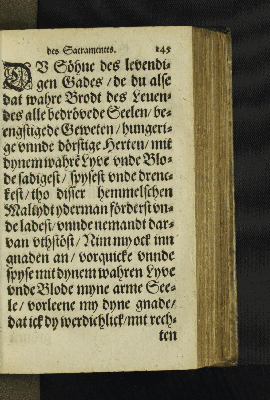 des Sacramentes. 145
DV Söhne des levendi-
gen Gades / de du alse
dat wahre Brodt des Leuen-
des alle bedrövede Seelen / be-
engstigede Geweten / hungeri-
ge vnnde dörstige Herten / mit
dynem wahrē Lyve vnde Blo-
de sadigest / spysest vnde drenc-
kest / tho disser hemmelschen
Maltydt yderman förderst vn-
de ladest / vnnde nemandt dar-
van vthstöst / Nim my ock inn
gnaden an / vorquicke vnnde
spyse mit dynem wahren Lyve
vnde Blode myne arme See-
le / vorleene my dyne gnade /
dat ick dy werdichlick / mit rech-
ten